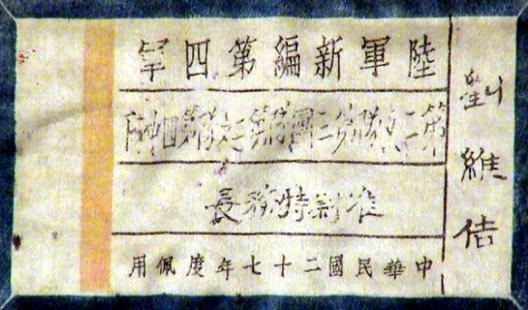 劉維佶
陸軍新編第四軍
第二支隊第三團第二第四
准尉特務長
中華民國二十七年度佩用